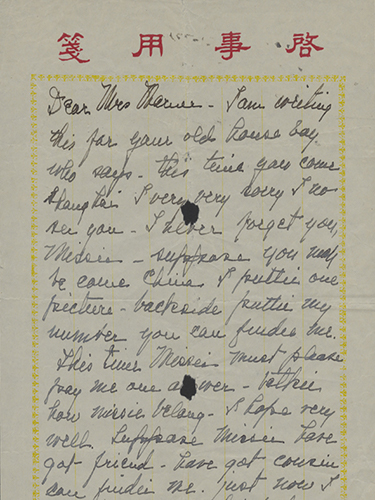 箋 用 事 啓
Dear Mrs - I am writing
this for your old house boy
who says - this time you come
Shanghai I very very sorry I no
see you - I never forget you,
Missie - suppose you may
be come China I puttie one
picture - backside puttie my
number you can findee me.
This time Missie must please
pay me one answer -
how missie belong - I hope very
well. Suppose Missie have
got friend - have got cousin
can findee me. just now I